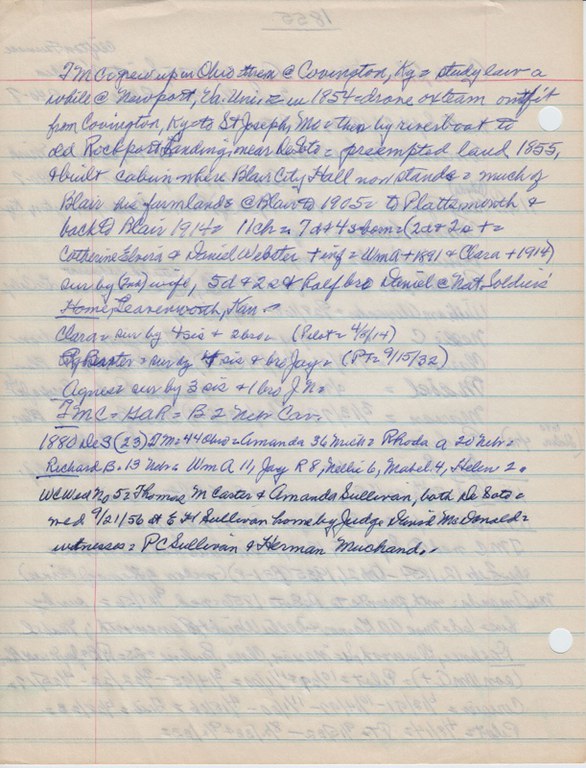 1855
TMC grew up in Ohio then @ Covington, Ky = study law a
while @ Newport, Va. Univ = in 1854 drove ox team outfit
from Covington, Ky to St Joseph, Mo = then by riverboat to
old Rockport Landing near DeSoto = preempted land 1855,
& built cabin where Blair City Hall now stands = much of
Blair his farmlands @ Blair to 1905 = to Plattsmouth &
back to Blair 1914 = 11ch = 7d & 4s born = (2d & 2s +=
Catherine Elvira & Daniel Webster + inf = Wm A +1891 & Clara +1914)
sur by wife, 5d & 2s & half bro Daniel @ Nat. Soldiers'
Home, Leavenworth, Kan =
Clara = sur by 4 sis & 2 bro = (Pilot = 4/ /14)
Baxter = sur by 4 sis & bro Jay = (PT = 9/15/32)
Agnes = sur by 3 sis & 1 bro J.R =
TMC = GAR = B 2 Nebr Cav.
1880 De S (23) TM = 44 Ohio = Amanda 36 Mich = Rhoda A 20 Nebr =
Richard B. 13 Nebr & Wm A 11, Jay R 8, Nellie 6, Mabel 4, Helen 2 =
WC Wed No 5 = Thomas M Carter & Amanda Sullivan, both De Soto =
wed 9/21/56 at E H Sullivan home by Judge David McDonald =
witnesses = PC Sullivan & Herman